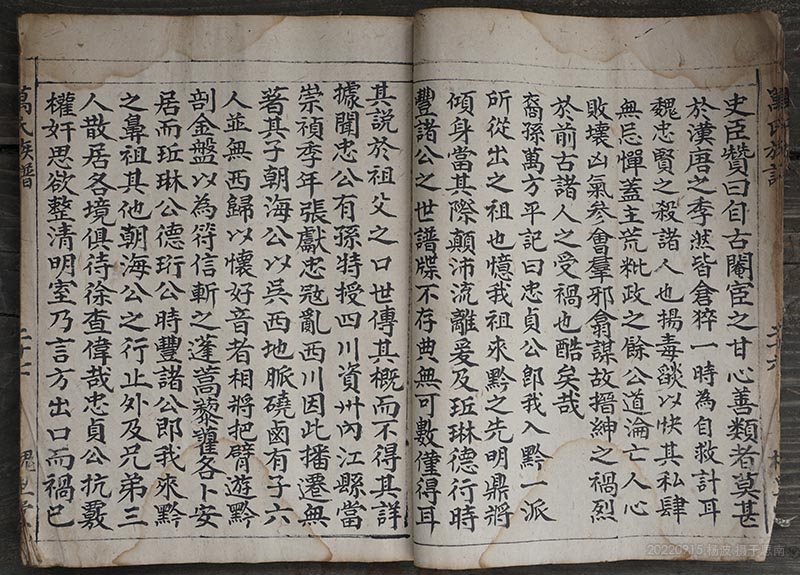 萬氏族譜
史臣贊曰自古閹宦之甘心善類者莫甚
於漢唐之季然皆倉猝一時為自救計耳
魏忠賢之殺諸人也揚毒燄以快其私肆
無忌憚蓋主荒粃政之餘公道淪亡人心
敗壞凶氣参會羣邪翕謀故搢紳之禍烈
於前古諸人之受禍也酷矣哉
裔孫萬方平記曰忠貞公郎我入黔一派
所從出之祖也憶我祖來黔之先明鼎將
傾身當其際顛沛流離爰及坵琳德行時
豐諸公之世譜牒不存典無可數僅得耳
其說於祖父之口世傳其概而不得其詳
據聞忠公有孫特授四川資州內江縣當
崇禎季年張獻忠冦亂西川因此播遷無
著其子朝海公以吳西地脈磽鹵有子六
人並無西歸以懷好音者相將把臂遊黔
剖金盤以為符信斬之蓬蒿藜藿各卜安
居而坵琳公德珩公時豐諸公郎我來黔
之鼻祖其他朝海公之行止外及兄弟三
人散居各境俱待徐查偉哉忠貞公抗覈
權奸思欲整清明室乃言方出口而禍已
萬氏族譜
二十七
20220915 杨波 摄于思南